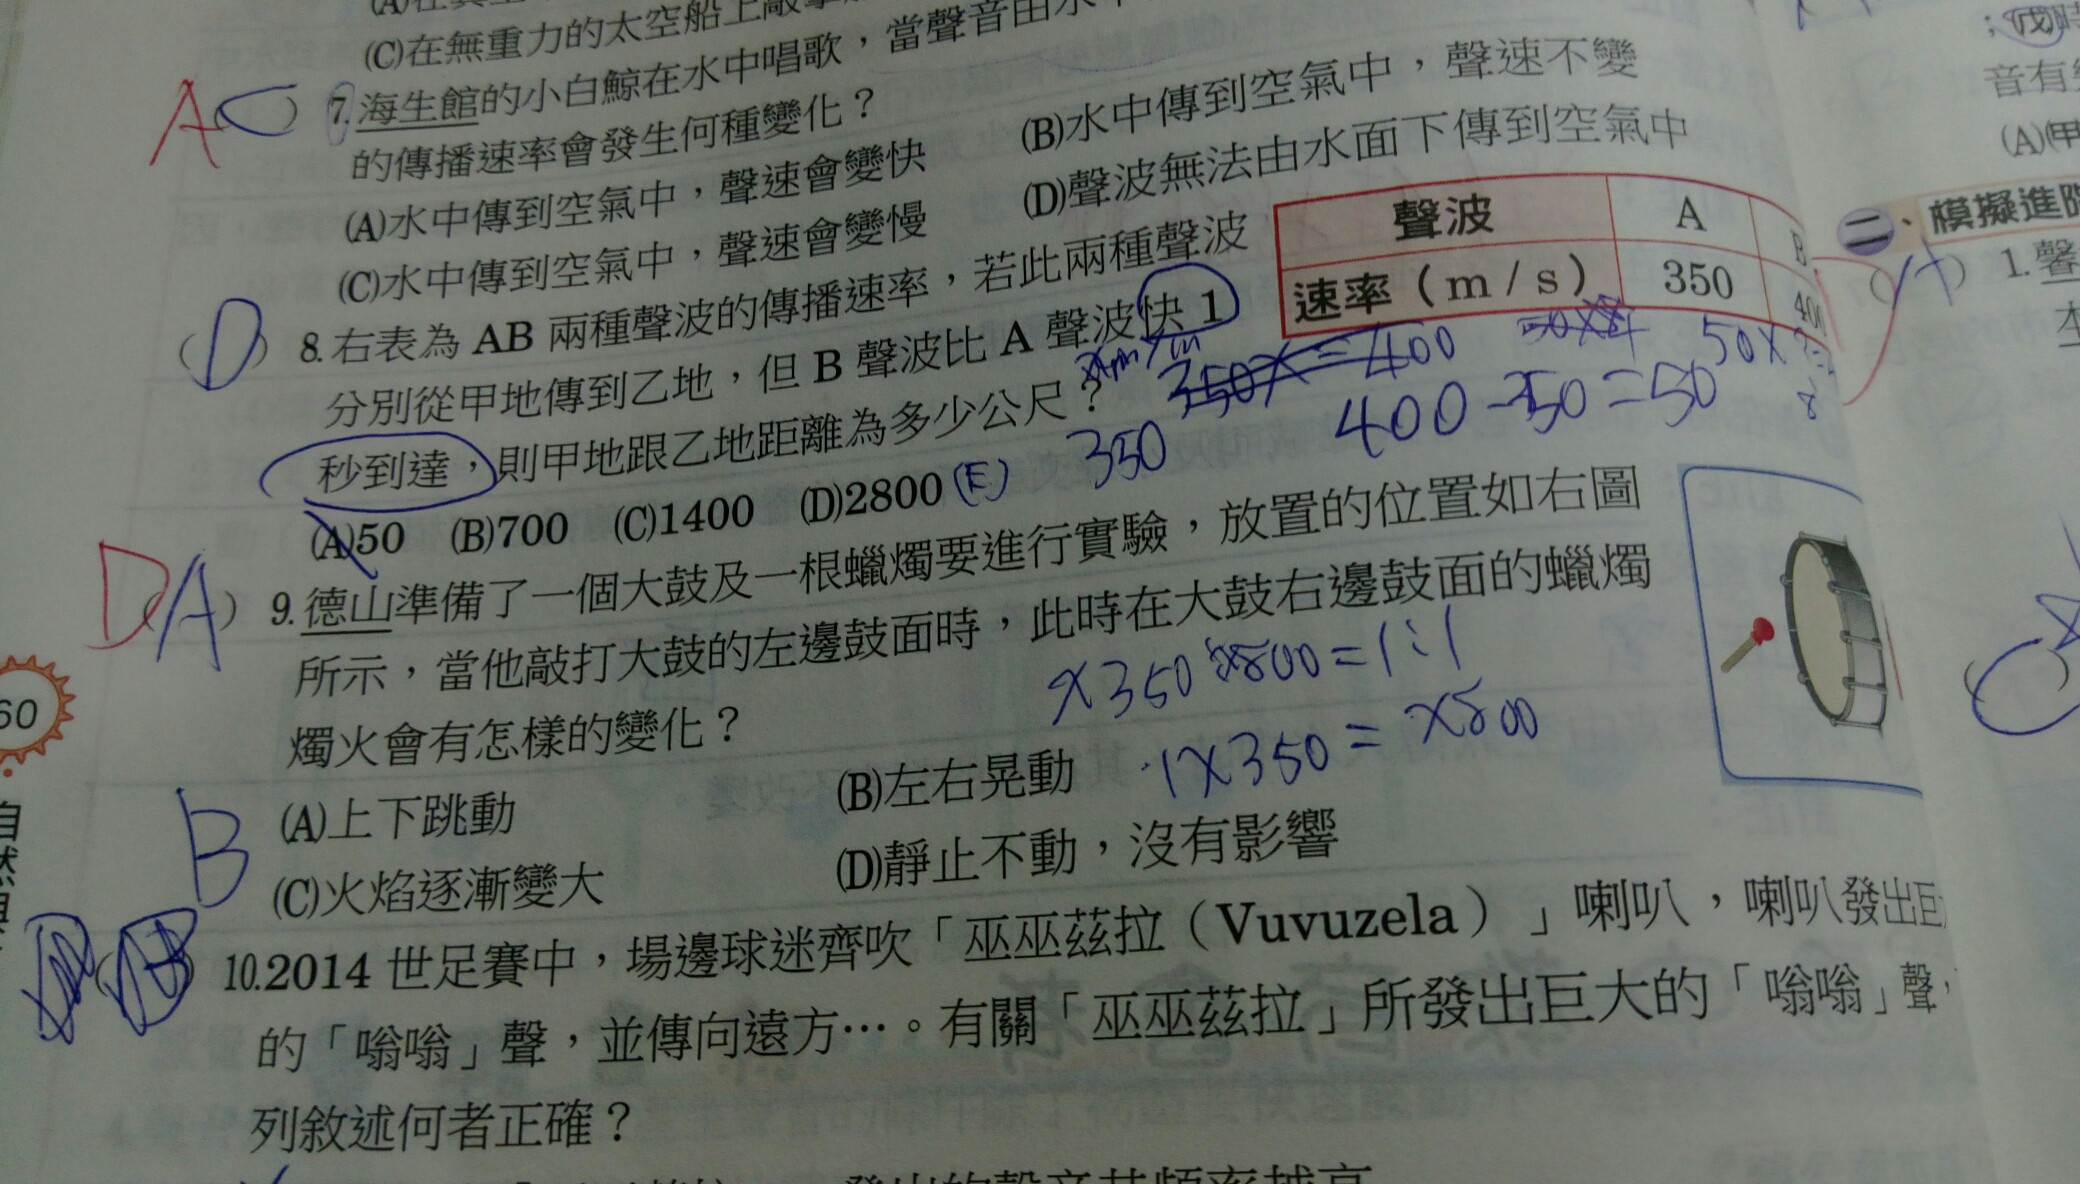 (C)在無重力的太空船上敲擊
A
7.海生館的小白鯨在水中唱歌，當聲音由水中
的傳播速率會發生何種變化？
(A)水中傳到空氣中，聲速會變快
(B)水中傳到空氣中，聲速不變
(C)水中傳到空氣中，聲速會變慢
(D)聲波無法由水面下傳到空氣中
(D) 8.右表為 AB 兩種聲波的傳播速率，若此兩種聲波
分別從甲地傳到乙地，但 B 聲波比 A 聲波快 1
秒到達，則甲地跟乙地距離為多少公尺？
(A)50 (B)700 (C)1400 (D)2800 (E)
聲波 A B
速率（m/s） 350 400
=400
50×
350
400-350=50
8
D (A) 9.德山準備了一個大鼓及一根蠟燭要進行實驗，放置的位置如右圖
所示，當他敲打大鼓的左邊鼓面時，此時在大鼓右邊鼓面的蠟燭
燭火會有怎樣的變化？
×350:×800=1:1
1×350=×800
(A)上下跳動
(B)左右晃動
(C)火焰逐漸變大
(D)靜止不動，沒有影響
B
10.2014 世足賽中，場邊球迷齊吹「巫巫茲拉（Vuvuzela）」喇叭，喇叭發出巨
的「嗡嗡」聲，並傳向遠方…。有關「巫巫茲拉」所發出巨大的「嗡嗡」聲，
列敘述何者正確？
發出的聲音其頻率越高
60
自然與
；(戊)時
音有
(A)(甲
二、模擬進階
1.聲
本